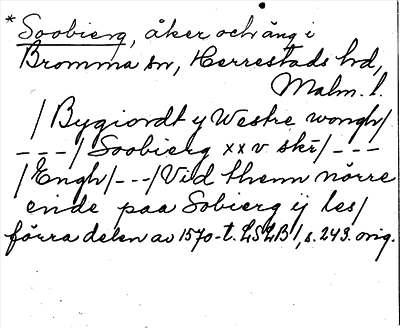 * Soobierg, åker och äng i
Bromma sn, Herrestads hd,
Malm. l.
/Bygiordt y Westre wongh/
---/Soobierg xxv skr/---
/Engh/---/Vid thenn nörre
ende paa Sobierg ij les/
förra delen av 1570-t. LSLB 1, s. 243. orig.